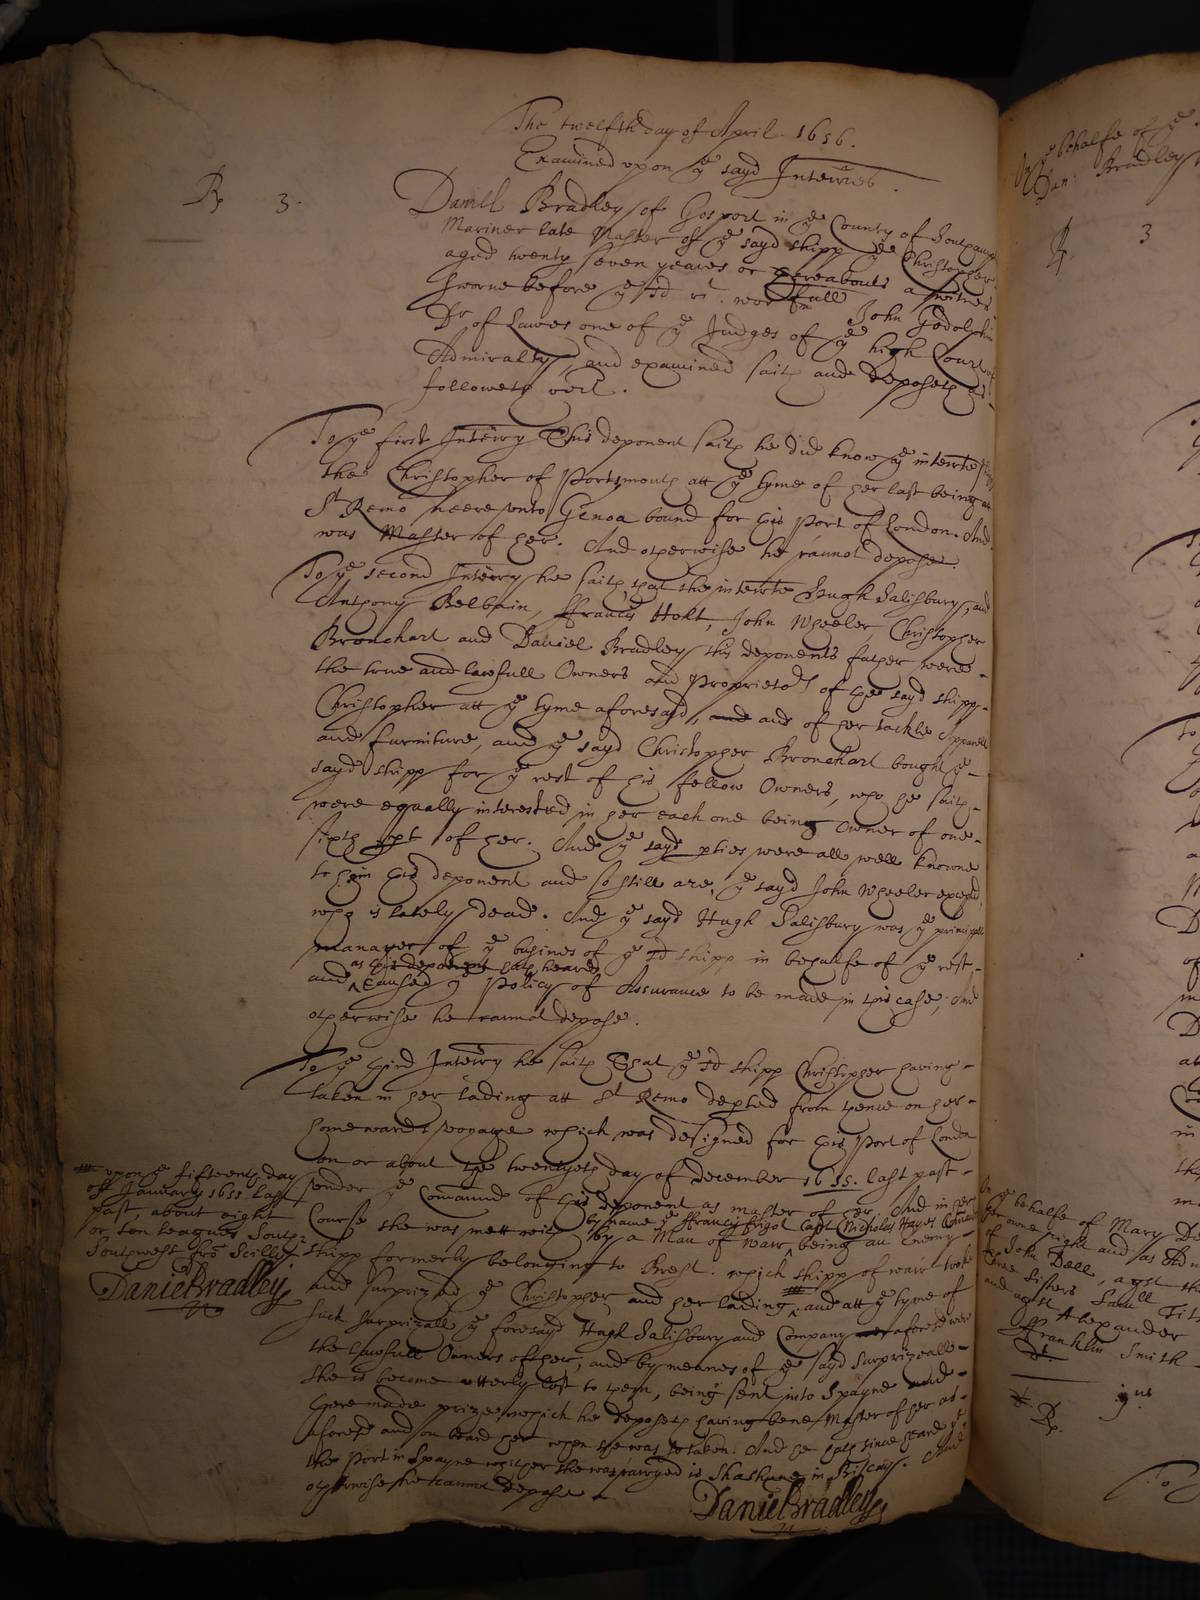 The twelfth day of April. 1656.
Examined upon ye sayd Interries.
Rp 3.
Daniell Bradley of Gosport in ye County of Southampton
Mariner late Master of ye sayd shipp ye Christopher
aged twenty seven yeares or thereabouts a witnes
sworne before ye sd worfull John Godolphin
Dr of Lawes one of ye Judges of ye high Court of
Admiralty, and examined saith and deposeth as
followeth vizt.
To ye first Interry This deponent saith he did know ye interrte shipp
the Christopher of Portsmouth att ye tyme of her last being at
St Remo neere unto Genoa bound for this port of London. And
was Master of her. And otherwise he cannot depose.
To ye second Interry he saith that the interrte Hugh Salisbury, and
Anthony Belbain, ffrancis Holt, John Wheeler, Christopher
Bronchart and Daniel Bradley this deponents father were
the true and lawfull Owners and Proprietors of the sayd shipp
Christopher att ye tyme aforesayd, and and of her tackle Apparell
and furniture, and ye sayd Christopher Bronchart bought ye
sayd shipp for ye rest of his fellow Owners, who he saith
were equally interested in her each one being Owner of one
sixth pt of her. And ye sayd pties were all well knowne
to him this deponent and so still are, ye sayd John Wheeler except,
who is lately dead. And ye sayd Hugh Salisbury was ye principall
manager of ye busines of ye sd shipp in behalfe of ye rest
as this deponent hath heard
and caused ye Policy of Assurance to be made in this case, And
otherwise he cannot depose.
To ye third Interry he saith That ye sd shipp Christopher having
taken in her lading at St Remo depted from thence on her
homewards voyage which was designed for this Port of London
on or about the twentyeth day of December 1655. last past
under ye Comaund of this deponent as master of her. And in her
by name ye ffrancis frigot Capt Nicholas Hayes Comander
Course she was mett with by a Man of Warr being an Enemy
shipp formerly belonging to Brest. which shipp of warr tooke
and surprized ye Christopher and her lading and att ye tyme of
such surprizall ye foresayd Hugh Salisbury and Company aforesd were
the lawfull Owners of her, and by meanes of ye sayd surprizeall
she is become utterly lost to them, being sent into Spayne and
there made prize, which he deposeth having bene Master of her as
aforesd and on board her when she was so taken. And he hath since heard yt
the Port in Spayne whither she was carryed is Shashune in Biscay. And
otherwise he cannot depose.
Daniel Bradley
upon ye fifteenth day
of January 1655. last
past, about eight
or ten leagues South
Southwest fro Scilly.
Daniel Bradley
ye behalfe of ye
Dan: Bradley
Rp 3
On ye behalfe of Mary De
her owne right and as Adm
of John Dell, agst the
three sisters Saull Tit
and agst Alexander
ffranklin Smith
Rp.